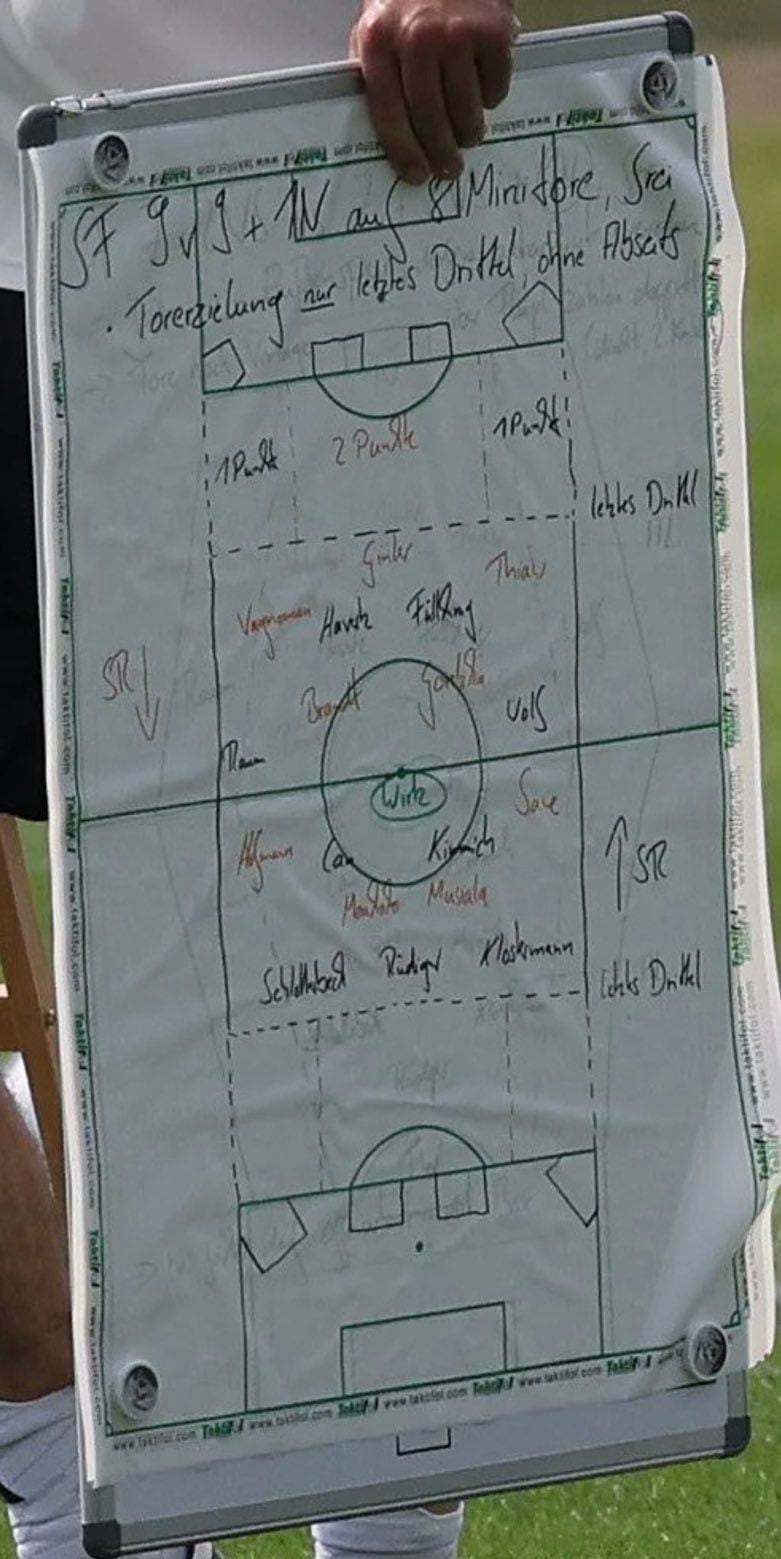 SF 9v9 + 1N auf 8 Minitore, frei
· Torerzielung nur letztes Drittel, ohne Abseits
1 Punkt 2 Punkte 1 Punkt
letztes Drittel
!!!
Ginter Thiaw
Vagnoman Havertz Füllkrug
SR
Brandt Goretzka Wolf
Raum
Wirtz Sane
Hofmann Can Kimmich
SR
Musiala
Schlotterbeck Rüdiger Klostermann
letztes Drittel
www.taktifol.com Taktifol www.taktifol.com Taktifol www.taktifol.com Taktifol www.taktifol.com Taktifol